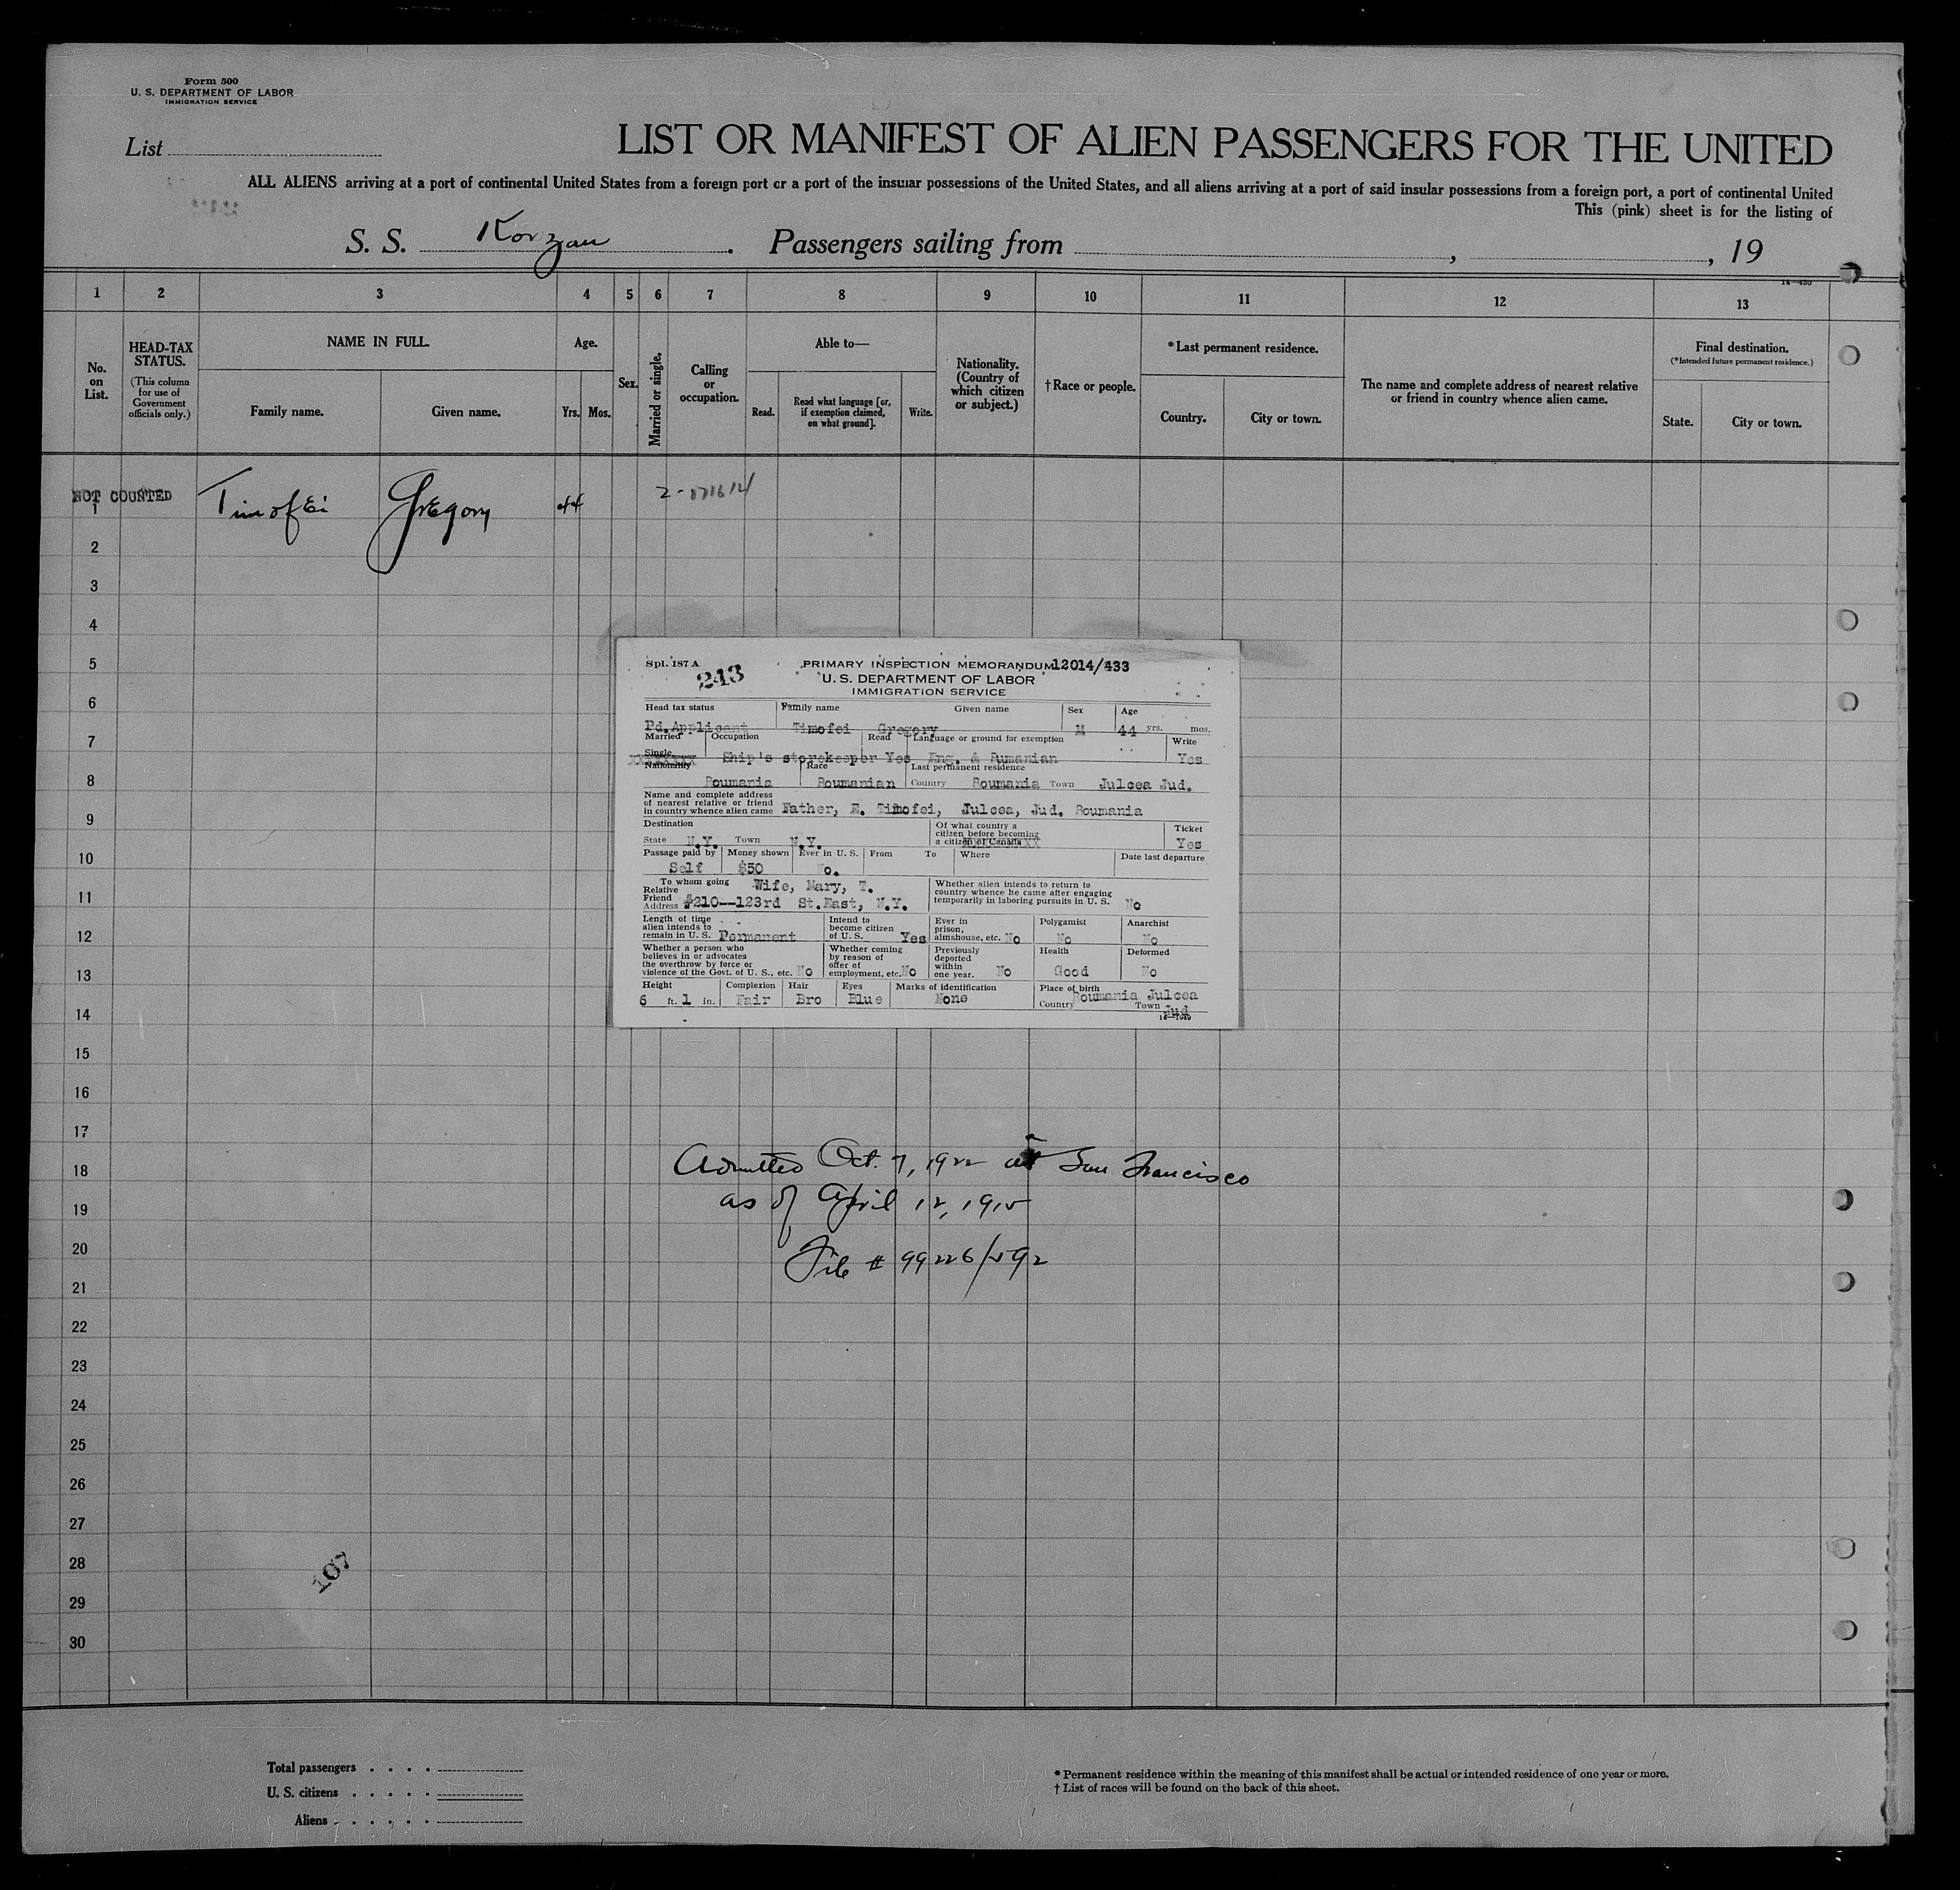 Form 500
U. S. DEPARTMENT OF LABOR
IMMIGRATION SERVICE
List
LIST OR MANIFEST OF ALIEN PASSENGERS FOR THE UNITED
ALL ALIENS arriving at a port of continental United States from a foreign port or a port of the insular possessions of the United States, and all aliens arriving at a port of said insular possessions from a foreign port, a port of continental United
This (pink) sheet is for the listing of
S. S. Korzan. Passengers sailing from , , 19
1 2 3 4 5 6 7 8 9 10 11 12 13
No. on List.
HEAD-TAX STATUS.
(This column for use of Government officials only.)
NAME IN FULL.
Family name. Given name.
Age.
Yrs. Mos.
Sex.
Married or single.
Calling or occupation.
Able to—
Read. Read what language [or, if exemption claimed, on what ground]. Write.
Nationality. (Country of which citizen or subject.)
†Race or people.
*Last permanent residence.
Country. City or town.
The name and complete address of nearest relative or friend in country whence alien came.
Final destination.
(*Intended future permanent residence.)
State. City or town.
NOT COUNTED
1 Timofei Gregory 44
2
3
4
5
6
7
8
9
10
11
12
13
14
15
16
17
18
19
20
21
22
23
24
25
26
27
28
29
30
Spl. 187 A
243
PRIMARY INSPECTION MEMORANDUM 12014/433
U. S. DEPARTMENT OF LABOR
IMMIGRATION SERVICE
Head tax status Family name Given name Sex Age
Pd.Applicant Timofei Gregory M 44 yrs. mos.
Married Occupation Read Language or ground for exemption Write
Single Ship's storekeeper Yes Eng. & Rumanian Yes
Nationality Race Last permanent residence
Roumania Roumanian Country Roumania Town Julcea Jud.
Name and complete address
of nearest relative or friend
in country whence alien came Father, E. Timofei, Julcea, Jud. Roumania
Destination
State N.Y. Town N.Y.
Of what country a citizen before becoming a citizen of Canada
Ticket
Yes
Passage paid by Money shown Ever in U. S. From To Where Date last departure
Self $50 No.
To whom going
Relative Wife, Mary, T.
Friend
Address #210--123rd St.East, N.Y.
Whether alien intends to return to
country whence he came after engaging
temporarily in laboring pursuits in U. S. No
Length of time
alien intends to
remain in U. S. Permanent
Intend to
become citizen
of U. S. Yes
Ever in
prison,
almshouse, etc. No
Polygamist
No
Anarchist
No
Whether a person who
believes in or advocates
the overthrow by force or
violence of the Govt. of U. S., etc. No
Whether coming
by reason of
offer of
employment, etc. No
Previously
deported
within
one year. No
Health
Good
Deformed
No
Height Complexion Hair Eyes Marks of identification Place of birth
6 ft. 1 in. Fair Bro Blue None Country Roumania Town Julcea
Jud
Admitted Oct. 7, 1922 at San Francisco
as of April 12, 1915
File # 99226/592
107
Total passengers
U. S. citizens
Aliens
* Permanent residence within the meaning of this manifest shall be actual or intended residence of one year or more.
† List of races will be found on the back of this sheet.